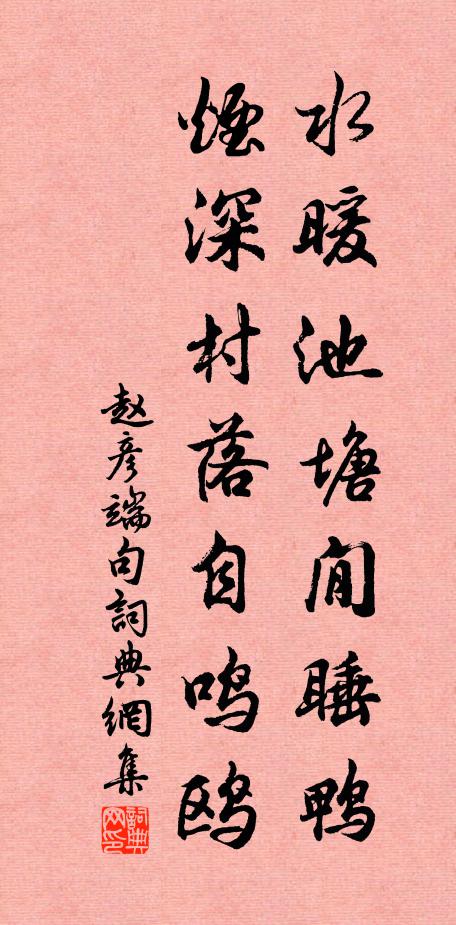 水暖池塘闲睡鸭
煙深村落自鸣鸥
赵彦端句詞典網集
詞典网印